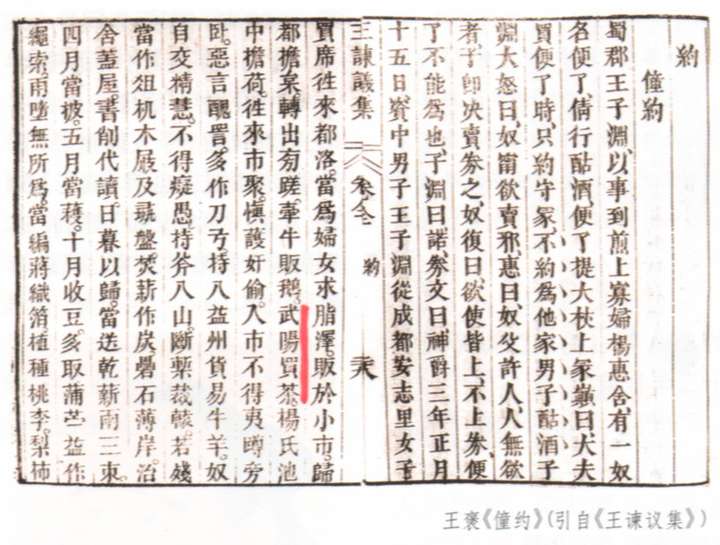 約
僮約
蜀郡王子淵、以事到煎上寡婦楊惠舍、有一奴
名便了、倩行酤酒、便了提大杖上冢巓曰、大夫
買便了時、只約守冢、不約為他家男子酤酒、子
淵大怒曰、奴甯欲賣邪、惠曰、奴父許人、人無欲
者、子卽決賣券之、奴復曰、欲使皆上、不上券、便
了不能為也、子淵曰諾、券文曰、神爵三年正月
十五日、資中男子王子淵、從成都安志里女子
王諫議集 卷全 約
買席、往來都洛、當為婦女求脂澤、販於小市、歸
都擔枲、轉出旁蹉、牽牛販鵝、武陽買茶、楊氏池
中擔荷、往來市聚、慎護奸偷、入市不得夷蹲旁
臥、惡言醜詈、多作刀弓、持入益州、貨易牛羊、奴
自交精慧、不得癡愚、持斧入山、斷輮裁轅、若殘
當作俎机木屐及彘盤、焚薪作炭、礨石薄岸、治
舍蓋屋、書削代牘、日暮以歸、當送乾薪兩三束、
四月當披、五月當穫、十月收豆、多取蒲苎、益作
繩索、雨墮無所為、當編蔣織箔、植種桃李、梨柿
王褒《僮约》（引自《王谏议集》）